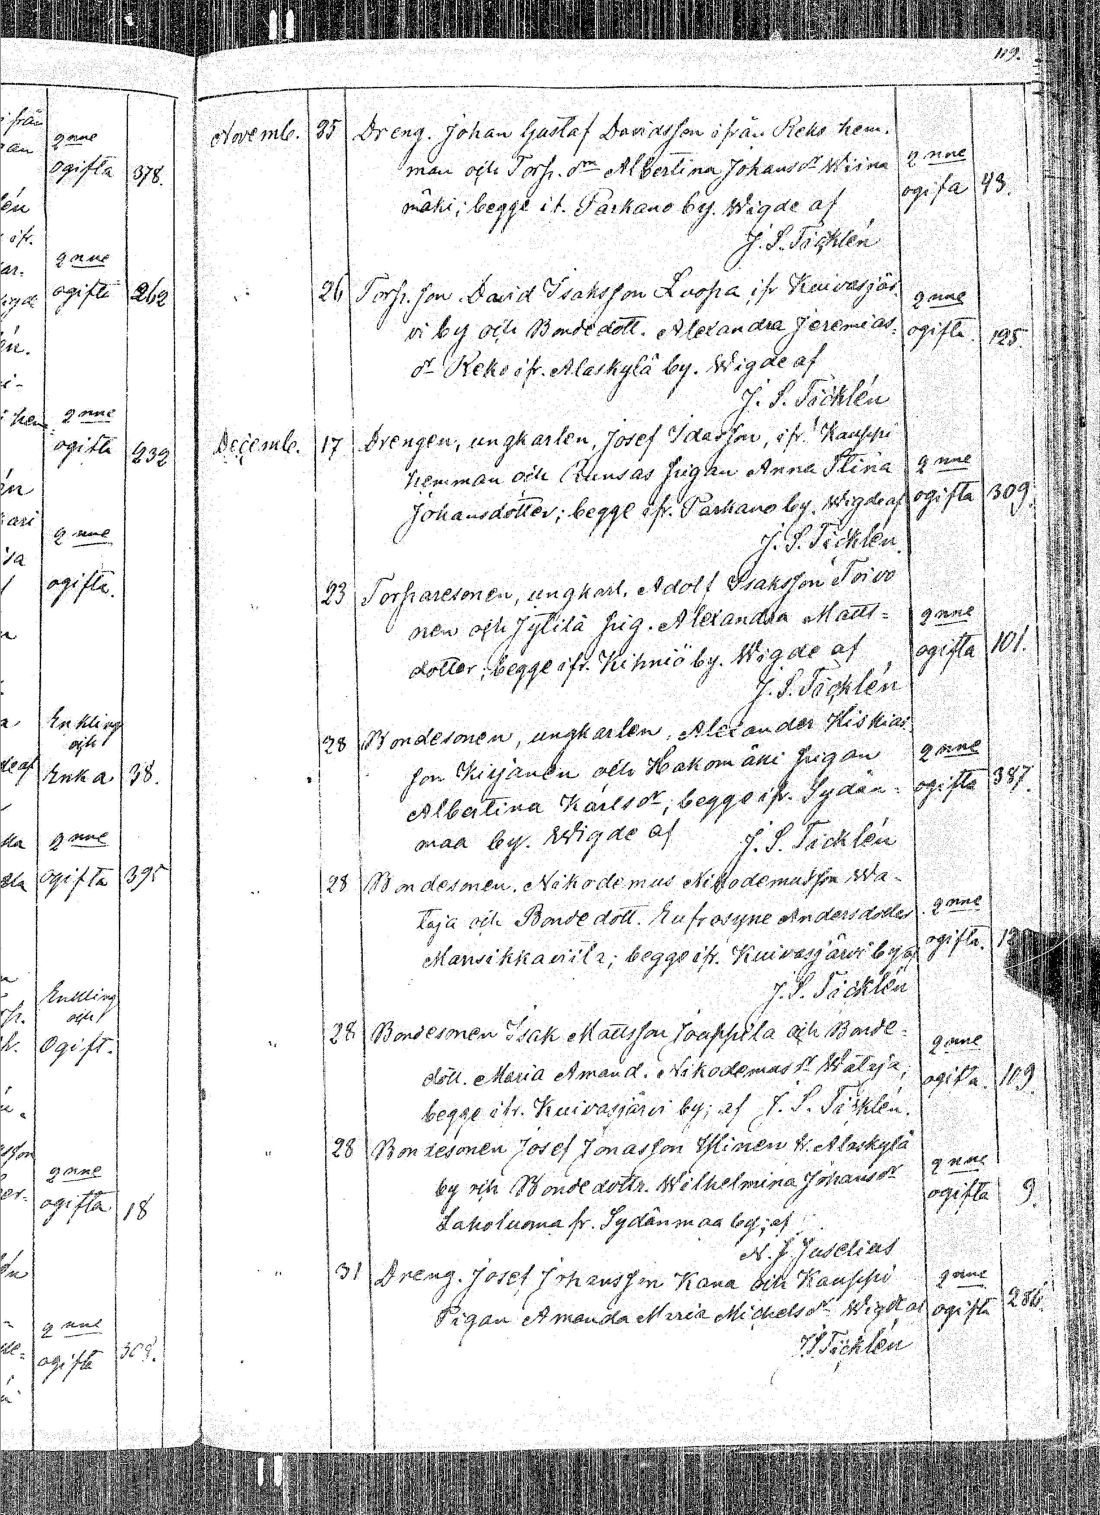 119.
Novemb. 25 Dreng. Johan Gustaf Davidsson ifrån Reko hem-
man och Torp. dm Albertina Johansdr Wiina
mäki; begge ifr. Parkano by. Wigde af
J. S. Täcklén
qnne
ogifta 43.
26 Torp. son David Isaksson Luopa ifr Kuivasjär
vi by och Bonde dott. Alexandra Jeremias-
dr Reko ifr. Alaskylä by. Wigde af
J. S. Täcklén
qnne
ogifta. 125.
Decemb. 17 Drengen, ungkarlen, Josef Idasson, ifr. Kauppi
hemman och Runsas pigan Anna Stina
Johansdotter; begge ifr. Parkano by. Wigde af
J. S. Täcklén.
qnne
ogifta 309.
23 Torparesonen, ungkarl. Adolf Isaksson Toivo
nen och Jylilä pig. Alexandra Matts-
dotter; begge ifr. Kihniö by. Wigde af
J. S. Täcklén
qnne
ogifta 101.
28 Bondesonen, ungkarlen, Alexander Hiskias
son Kirjanen och Hakomäki pigan
Albertina Karlsdr, begge ifr. Sydän-
maa by. Wigde af J. S. Täcklén
qnne
ogifta 387.
28 Bondesonen. Nikodemus Nikodemusson Wa-
taja och Bonde dott. Eufrosyne Andersdotter
Mansikkaviita; begge ifr. Kuivasjärvi by af
J. S. Täcklén
qnne
ogifta.
28 Bondesonen Isak Mattsson Joappila och Bonde-
dött. Maria Amand. Nikodemusdr Wataja,
begge ifr. Kuivasjärvi by; af J. S. Täcklén.
qnne
ogifta. 109
28 Bondesonen Josef Jonasson Ylinen fr. Alaskylä
by och Bonde dottr. Wilhelmina Johansdr
Laholuoma fr. Sydänmaa by; af
N. J. Juselius
qnne
ogifta 9.
31 Dreng. Josef Johansson Kana och Kauppi
Pigan Amanda Maria Michelsdr Wigde af
J. S. Täcklén
qnne
ogifta 286.
qnne
ogifta 378.
qnne
ogifta 262
qnne
ogifta 232
qnne
ogifta.
Enkling
och
Enka 38.
qnne
ogifta 395
Enkling
och
Ogift.
qnne
ogifta 18
qnne
ogifta